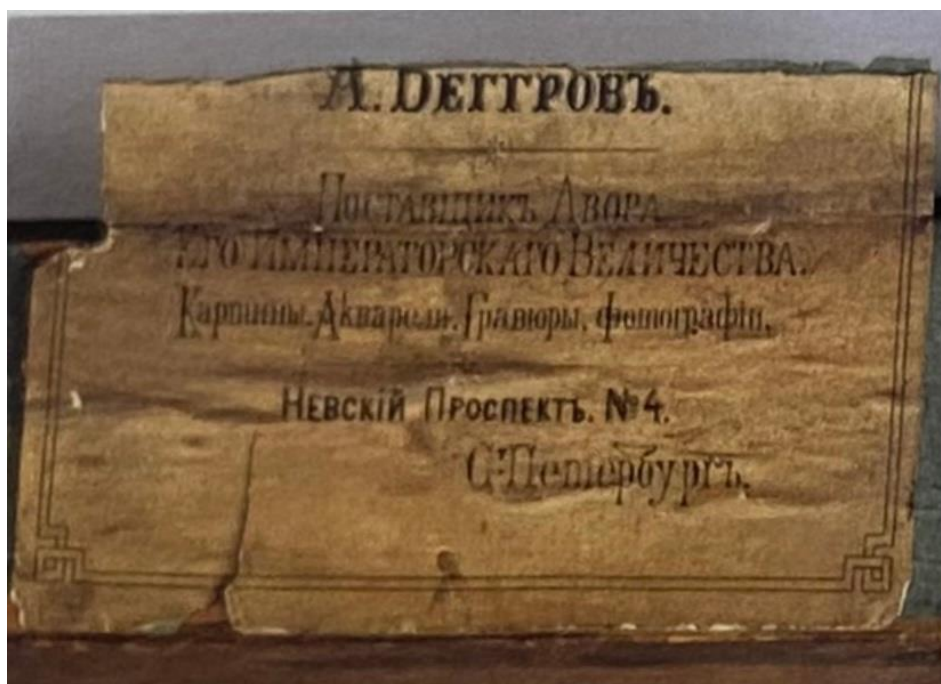 А. ДЕГГРОВЪ.
ПОСТАВЩИКЪ ДВОРА
ЕГО ИМПЕРАТОРСКАГО ВЕЛИЧЕСТВА.
Картины. Акварели. Гравюры. фотографіи.
НЕВСКІЙ ПРОСПЕКТЪ. №4.
С.Петербургъ.